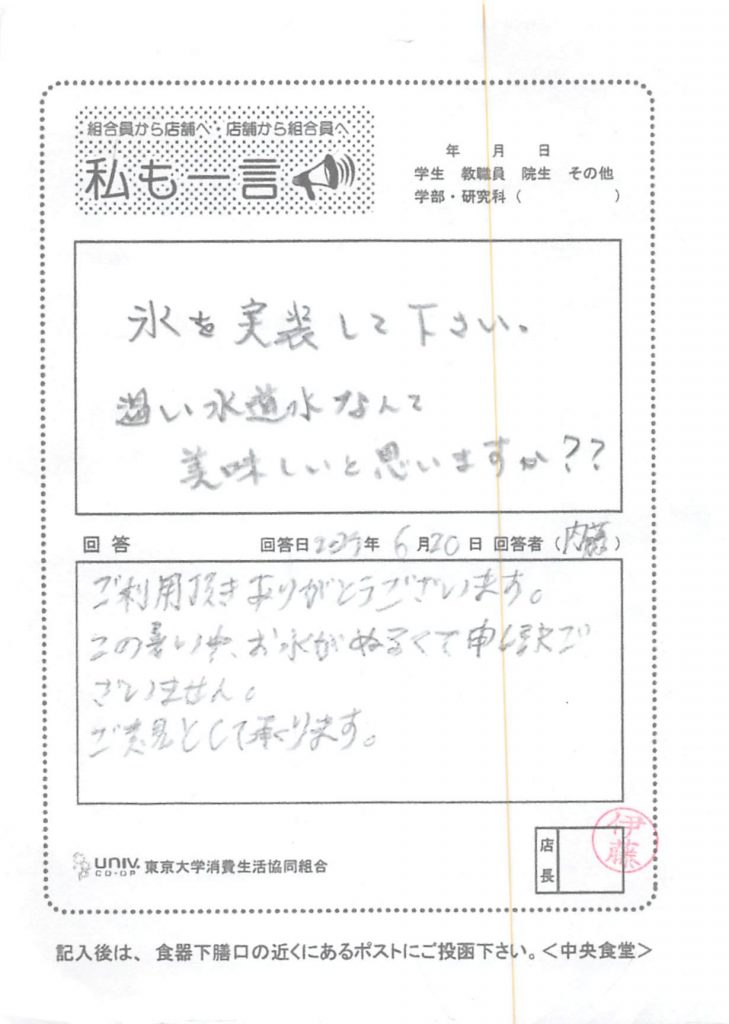 組合員から店舗へ・店舗から組合員へ
私も一言
年 月 日
学生 教職員 院生 その他
学部・研究科（ ）
氷を実装して下さい。
温い水道水なんて
美味しいと思いますか??
回答 回答日 年 6月20日 回答者（内藤）
ご利用頂きありがとうございます。
この暑い中、お水がぬるくて申し訳ご
ざいません。
ご意見として承ります。
UNIV. CO-OP 東京大学消費生活協同組合
店長
伊藤
記入後は、食器下膳口の近くにあるポストにご投函下さい。＜中央食堂＞